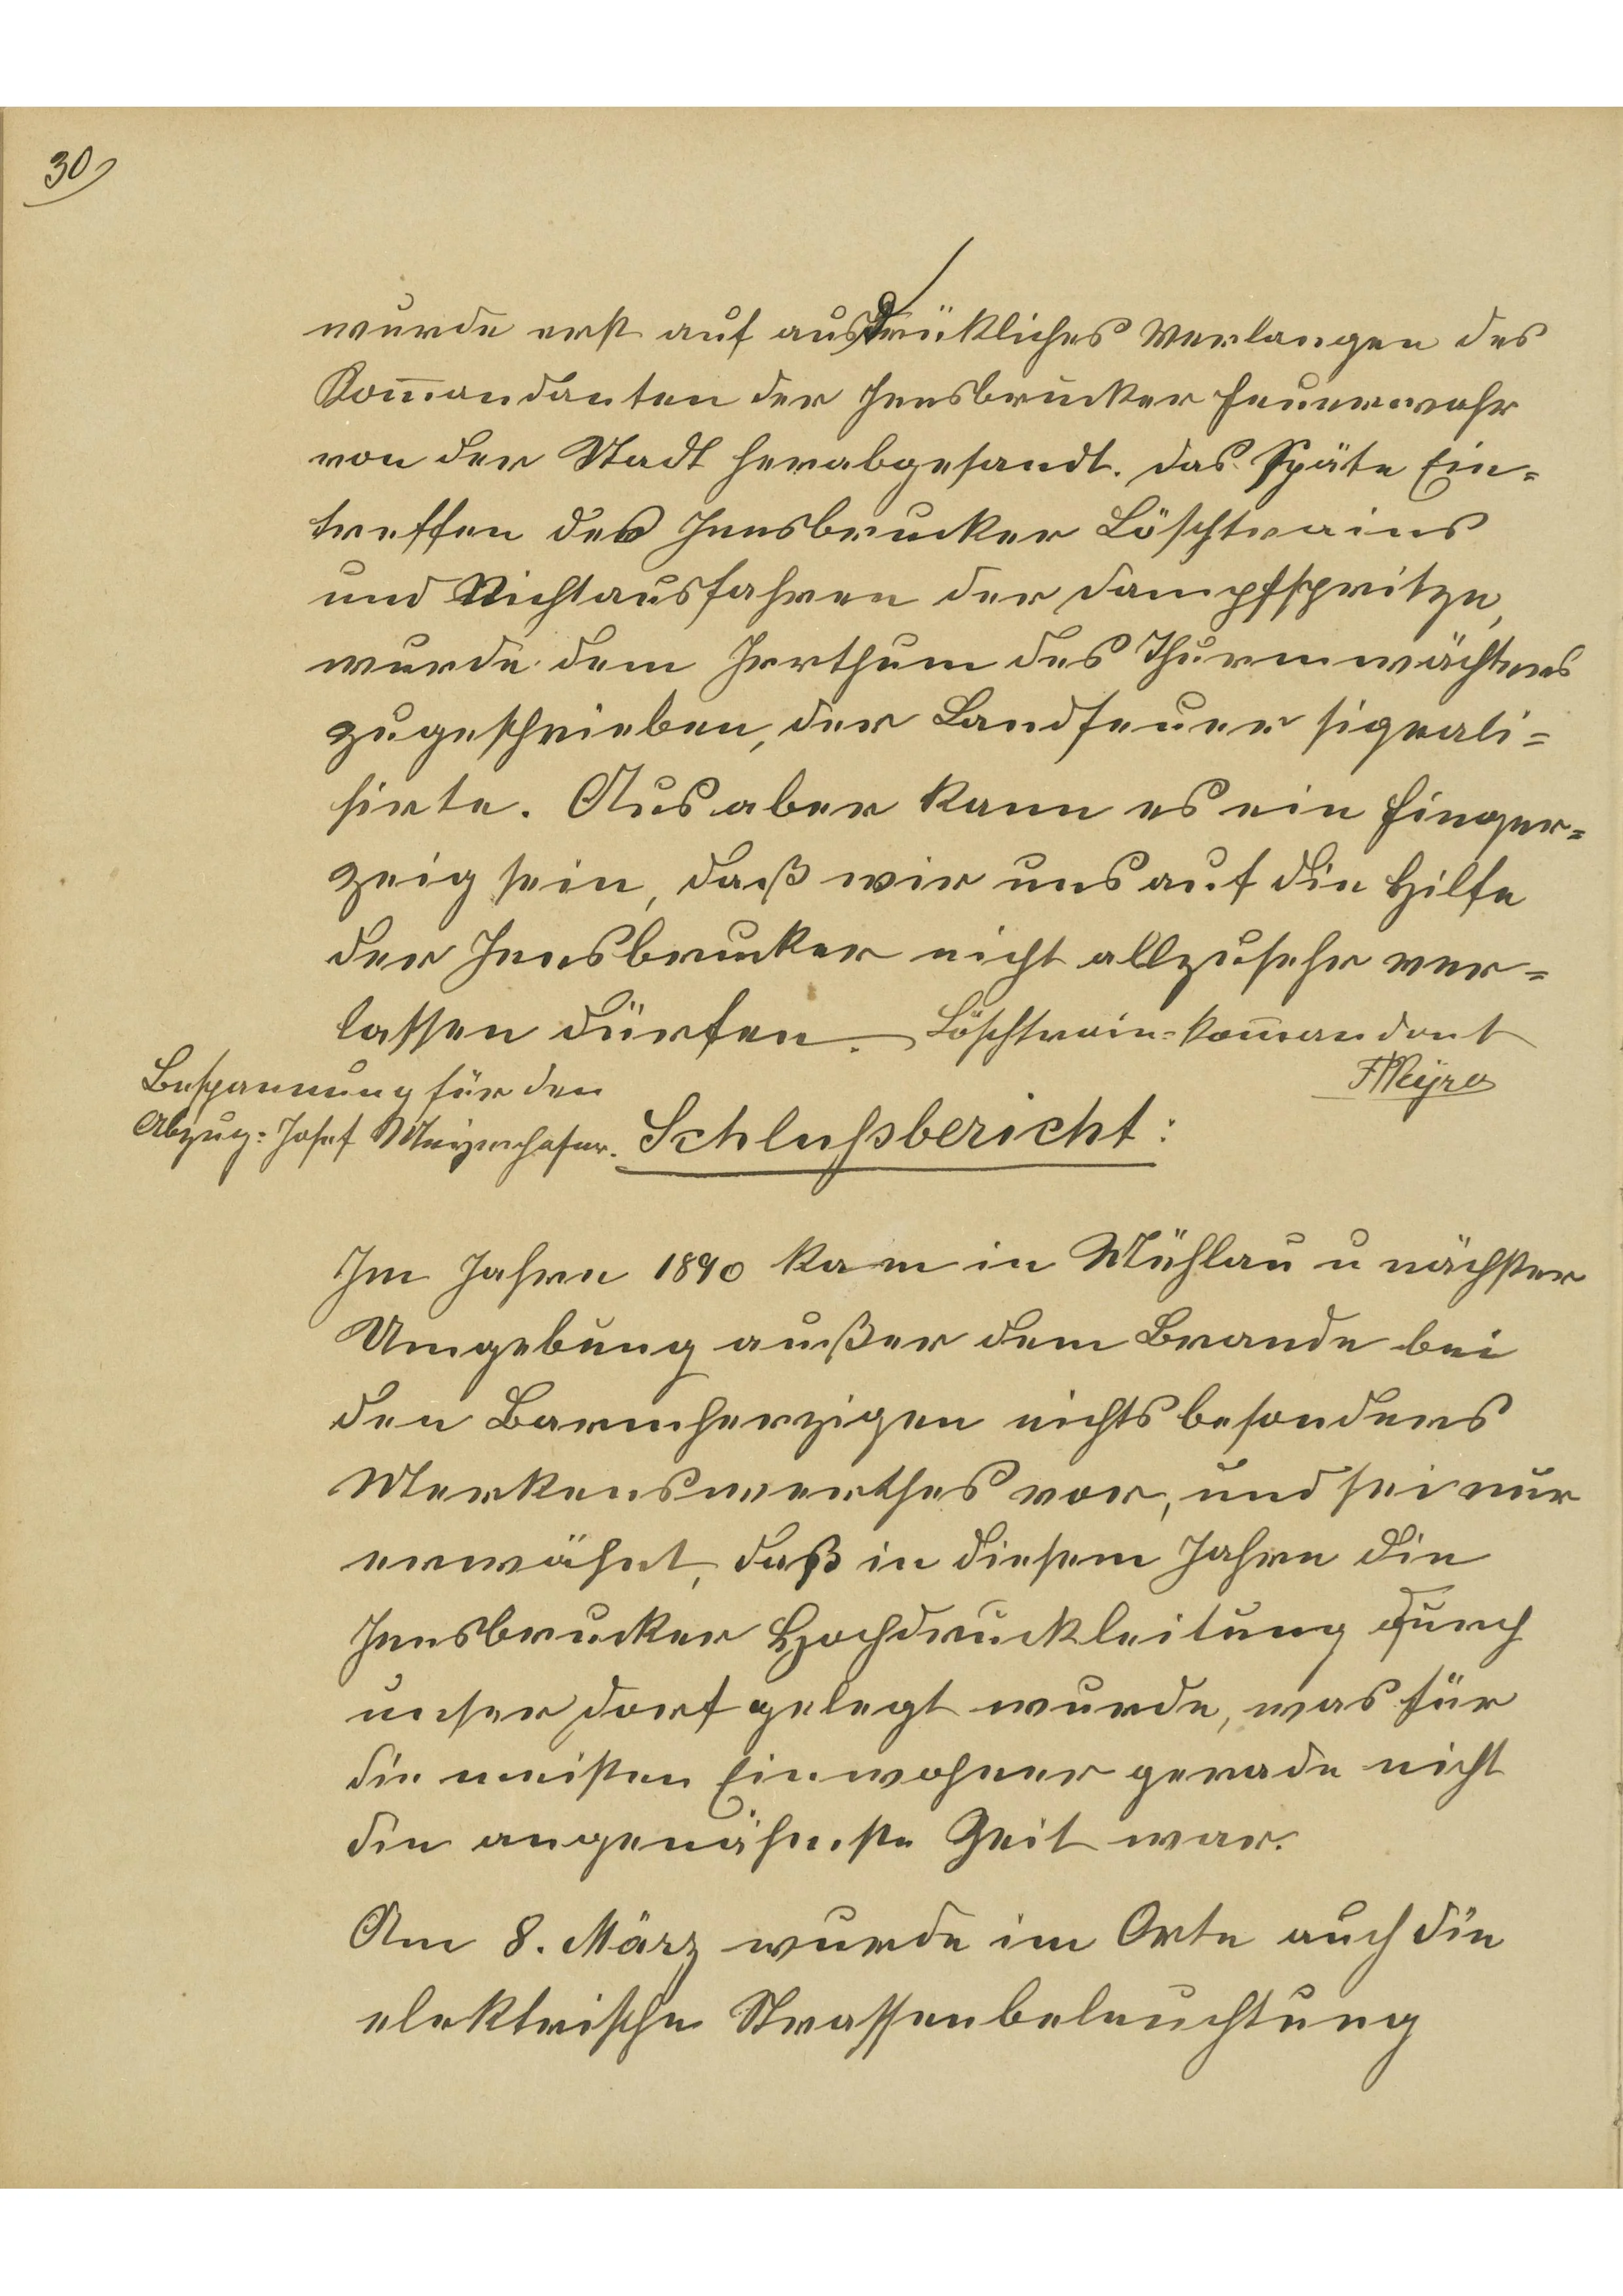 30
wurde erst auf ausdrükliches Verlangen des
Kom̄andanten der Innsbrucker Feuerwehr
von der Stadt herabgesandt. Das Späte Ein=
treffen des Innsbrucker Löschtrains
und Nichtausfahren der Dampfspritze,
wurde dem Irrthum des Thurmwächters
zugeschrieben, der Landfeuer signali=
sirte. Uns aber kann es ein Finger=
zeig sein, daß wir uns auf die Hilfe
der Innsbrucker nicht allzusehr ver=
lassen dürfen. Löschtrain=Kom̄andant
Bespannung für den
Abzug: Josef
Schlußbericht:
Im Jahre 1890 kam in Mühlau u nächster
Umgebung außer dem Brande bei
den Barmherzigen nichts besonders
Merkenswerthes vor, und sei nur
erwähnt, daß in diesem Jahre die
Innsbrucker Hochdruckleitung durch
unser Dorf gelegt wurde, was für
die meisten Einwohner gerade nicht
die angenähmste Zeit war.
Am 8. März wurde im Orte auch die
elektrische Strassenbeleuchtung